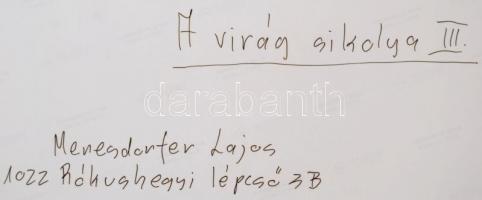 A virág sikolya III.
darabanth
Menesdorfer Lajos
1022 Rókushegyi lépcső 3B